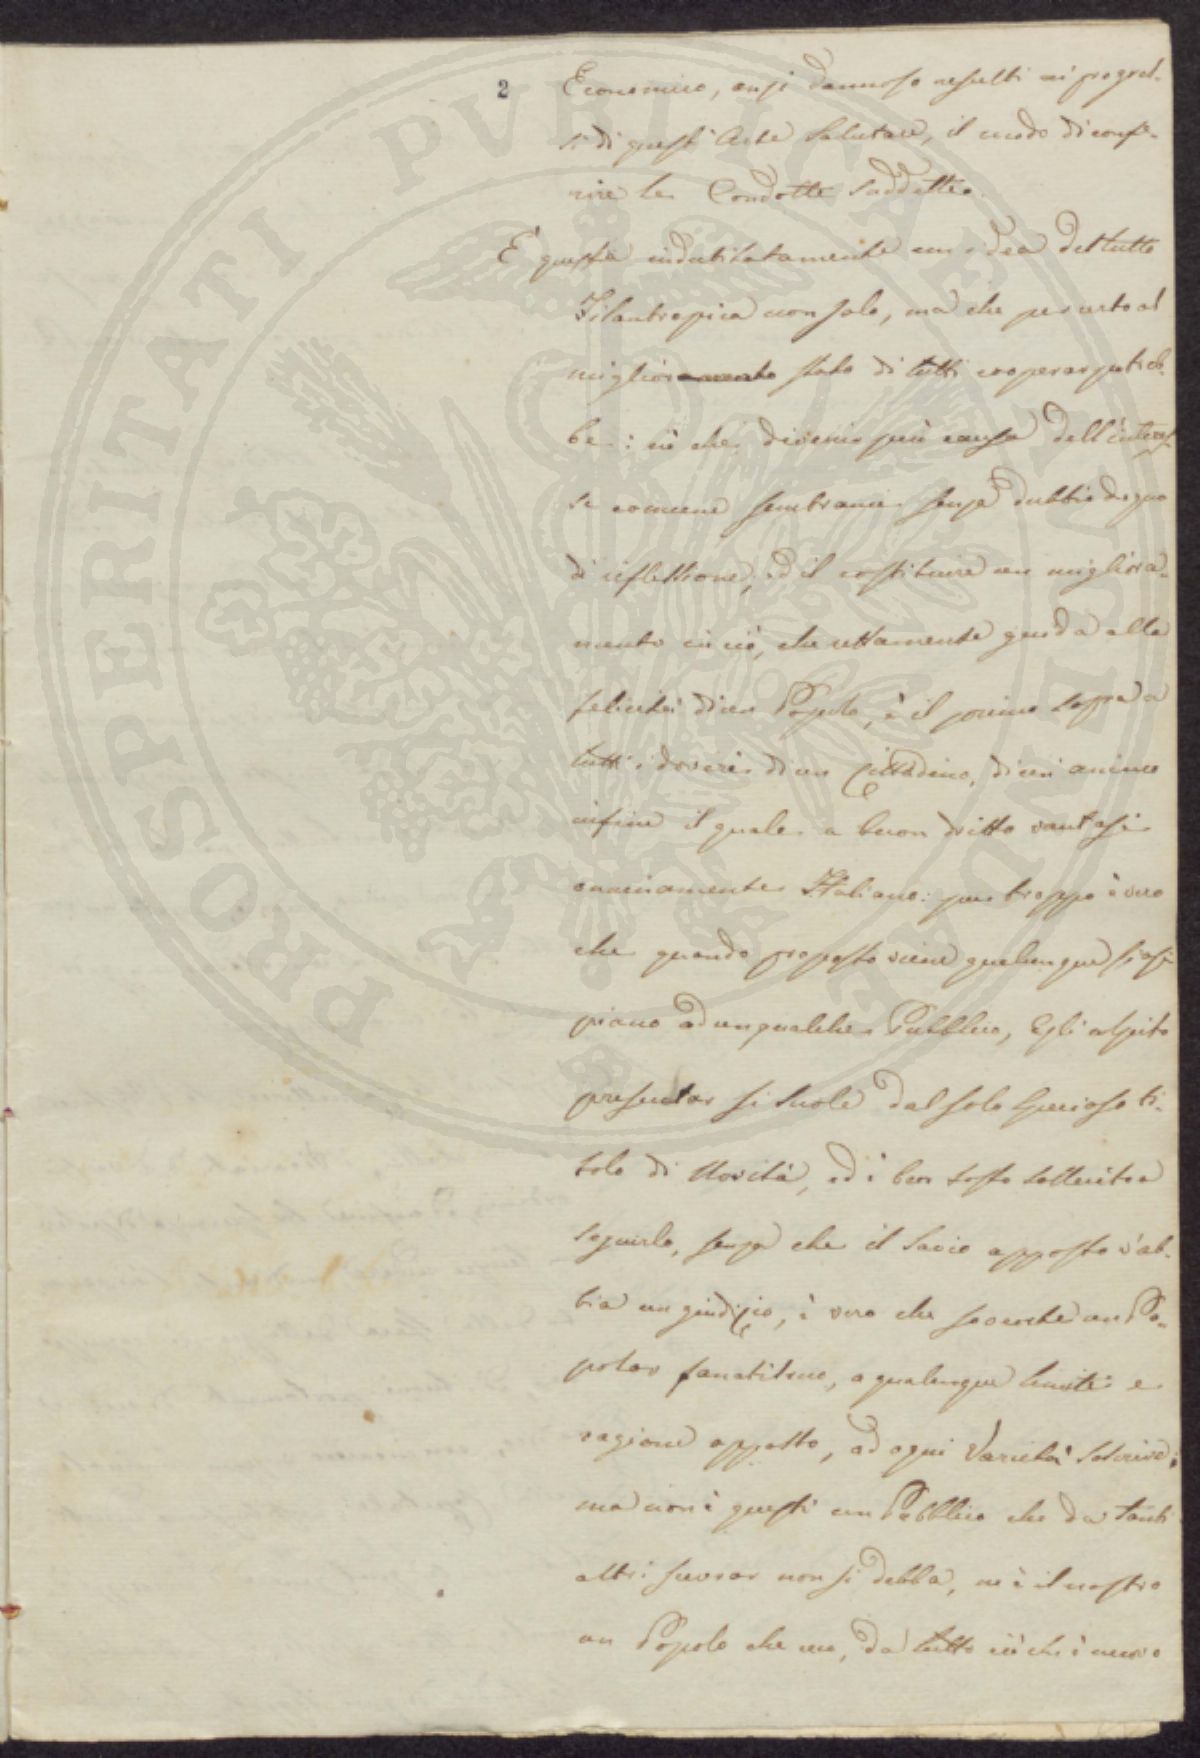 2
Economico, anzi dannoso resulti ai progres-
si di quest'Arte Salutare, il modo di confe-
rire le Condotte suddette.
È questa indubitatamente un idea del tutto
Filantropica non solo, ma che per certo al
miglior stato di tutti cooperar potreb-
be: ciò che diviene più causa dell'interes
se comune sembrami senza dubbio degno
di riflessione, ed il costituire un migliora-
mento in ciò, che rettamente guida alla
felicità di un Popolo, è il primo sopra a
tutti i doveri di un Cittadino, di un animo
infine il quale a buon dritto vantasi
Italiano: pur troppo è vero
che quando proposto viene qualunque siasi
piano ad un qualche Pubblico, Egli
presentar si suole dal solo specioso ti-
tolo di Novità, ed è ben tosto sollecito a
seguirlo, senza che il Savio apposto v'ab-
bia un giudizio, è vero che un Po-
polar fanatismo, a qualunque limite e
ragione opposto, ad ogni Varietà
ma non è questi un Pubblico che da tanti
altri sevrar non si debba, nè è il nostro
un Popolo che da tutto ciò ch'è nuovo
PROSPERITATI PVBLICAE AVGENDAE